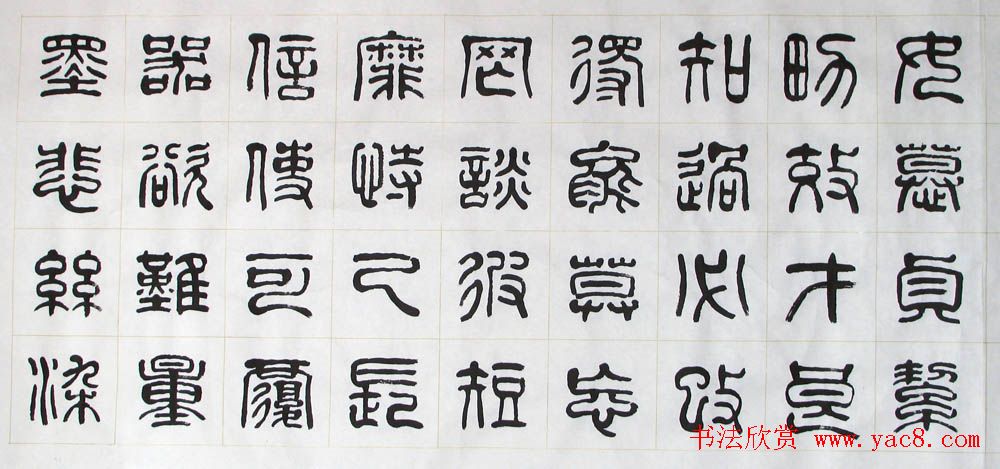 女慕貞絜
男效才良
知過必改
得能莫忘
罔談彼短
靡恃己長
信使可覆
器欲難量
墨悲絲染
书法欣赏 www.yac8.com